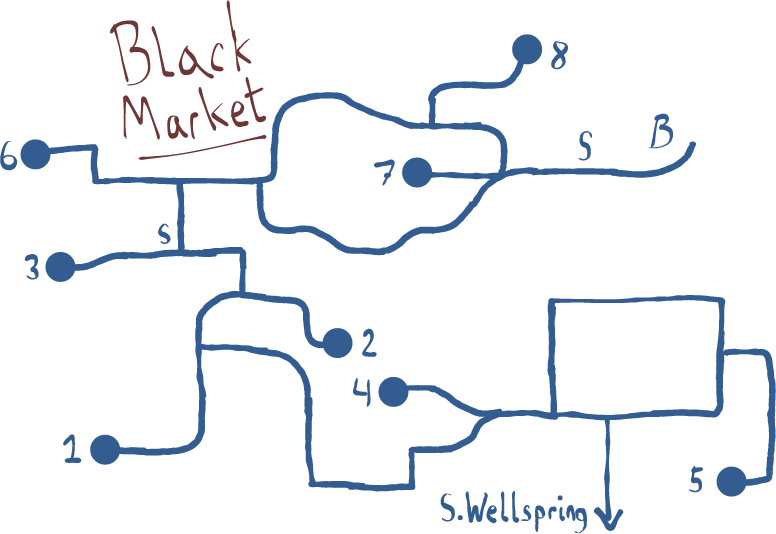 Black
Market
8
B
S
6
7
S
3
2
4
1
5
S.Wellspring